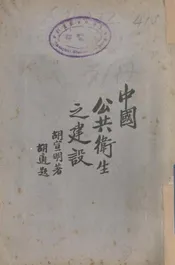 中國
公共衛生
之建設
胡宣明著
胡適題